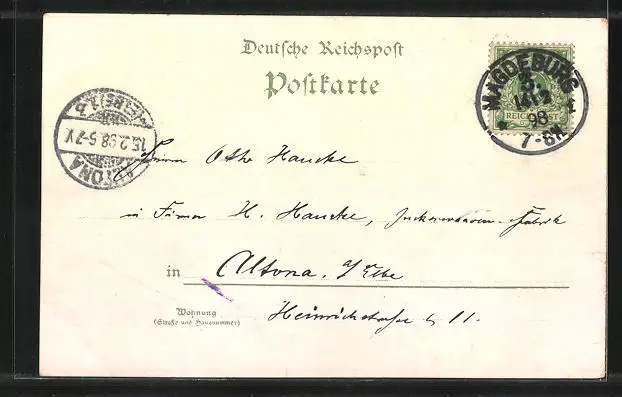 Deutsche Reichspost
Postkarte
MAGDEBURG
3.
14 2
98
7-8N.
REICHSPOST
ALTONA
15.2.98.6-7V.
Herrn Otto Haucke
in Firma H. Haucke, Fabrik
in Altona. a/Elbe
Wohnung
(Straße und Hausnummer)
Heinrichstraße 11.